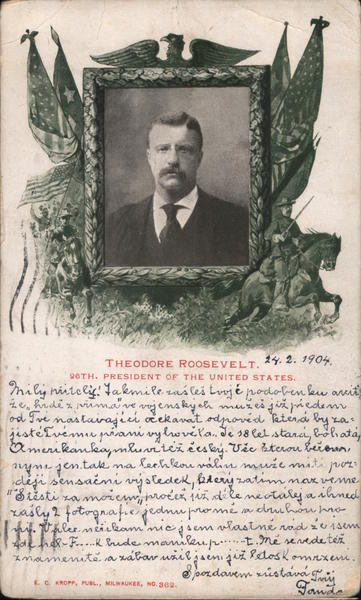 THEODORE ROOSEVELT. 24.2. 1904.
26TH. PRESIDENT OF THE UNITED STATES.
Milý příteli! Jakmile zašleš tvoje podobenku
že, hrdě z v vojenských již předem
od Tvé nastávající očekávat odpověď která by za-
jisté Tvému přání vyhověla. Je 18 let stará, bohatá,
Amerikánka, mluví též český. Věc
nyní jen tak na lehkou váhu může míti poz-
ději sensační výsledek, který zatím nazveme
"Štěstí za mořem", pročež již dále neotálej a ihned
zašli 2 fotografie jednu pro mě a druhou pro
ní. nic jsem vlastně rád že jsem
bude t. Mě se vede též
znamenitě a zábav užil jsem již letos
S pozdravem zůstává Tvůj
E. C. KROPP, PUBL., MILWAUKEE, NO. 362.